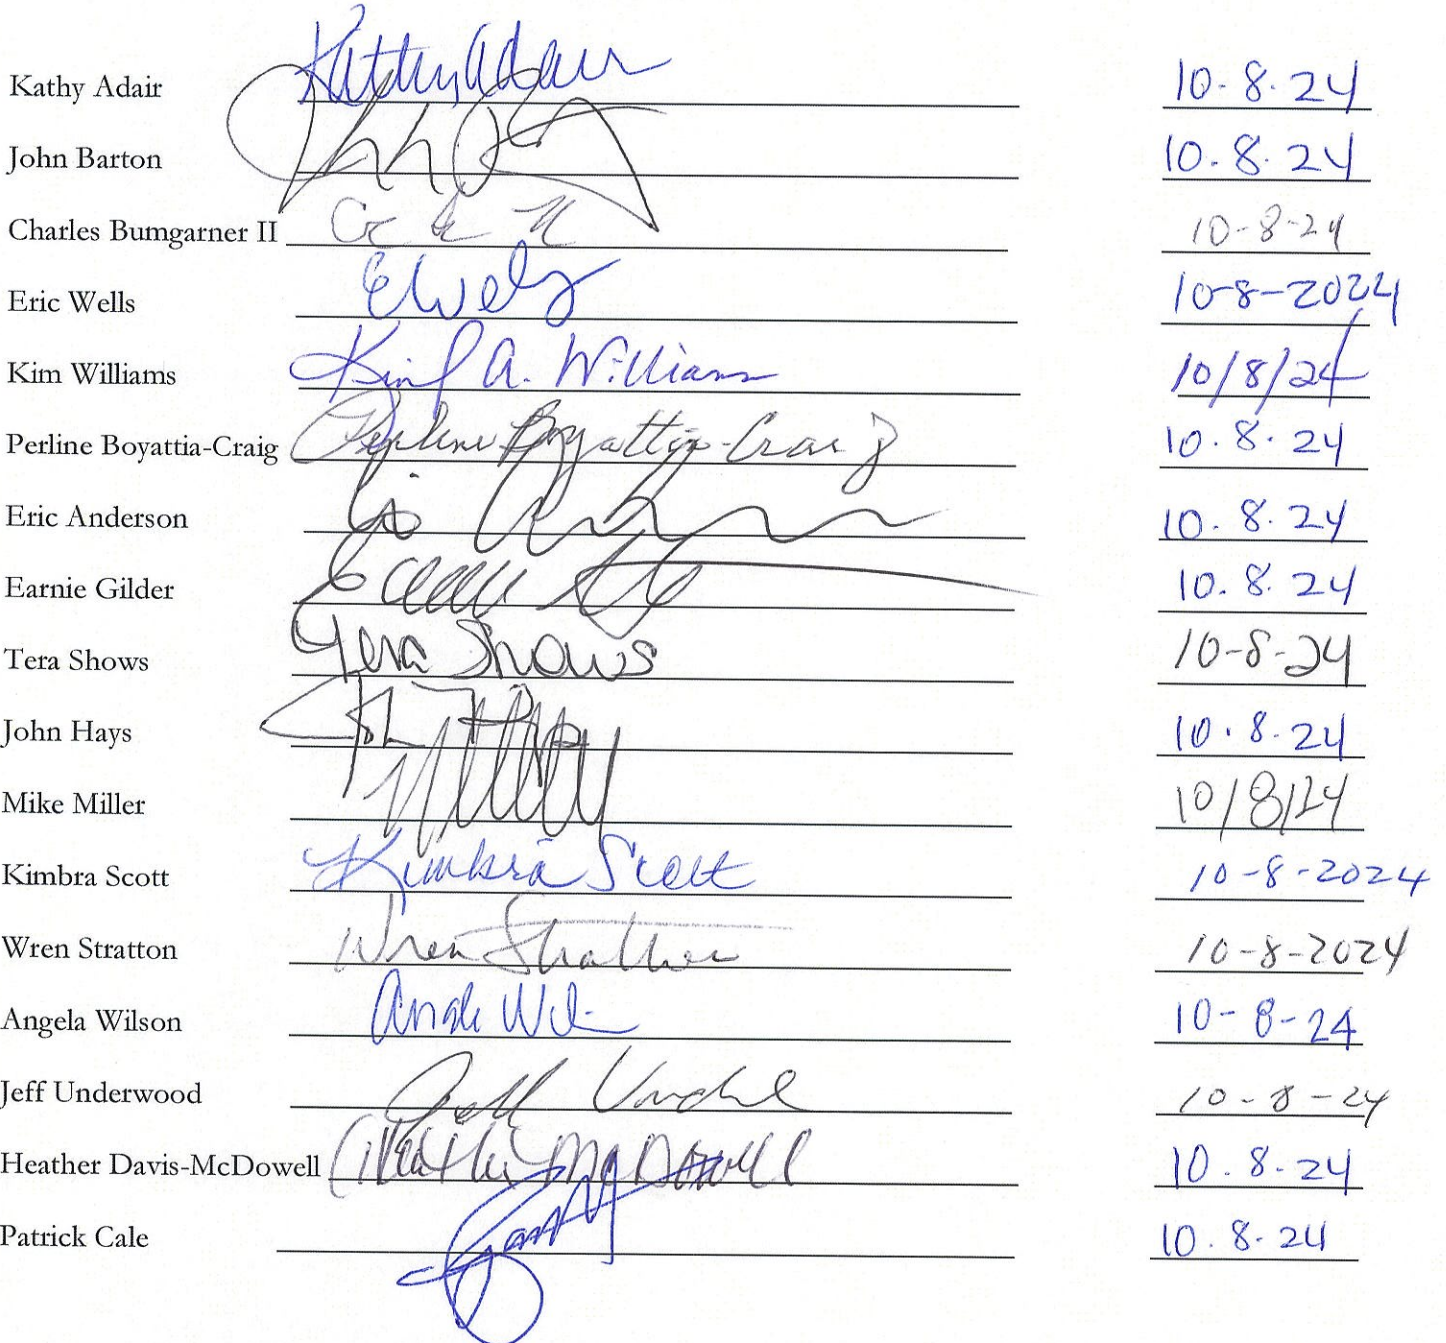 Kathy Adair Kathy Adair 10.8.24
John Barton 10.8.24
Charles Bumgarner II 10-8-24
Eric Wells EWells 10-8-2024
Kim Williams Kim A. Williams 10/8/24
Perline Boyattia-Craig Perline Boyattia-Craig 10.8.24
Eric Anderson 10.8.24
Earnie Gilder 10.8.24
Tera Shows Tera Shows 10-8-24
John Hays 10.8.24
Mike Miller 10/8/24
Kimbra Scott Kimbra Scott 10-8-2024
Wren Stratton Wren Stratton 10-8-2024
Angela Wilson 10-8-24
Jeff Underwood 10-8-24
Heather Davis-McDowell Heather McDowell 10.8.24
Patrick Cale 10.8.24